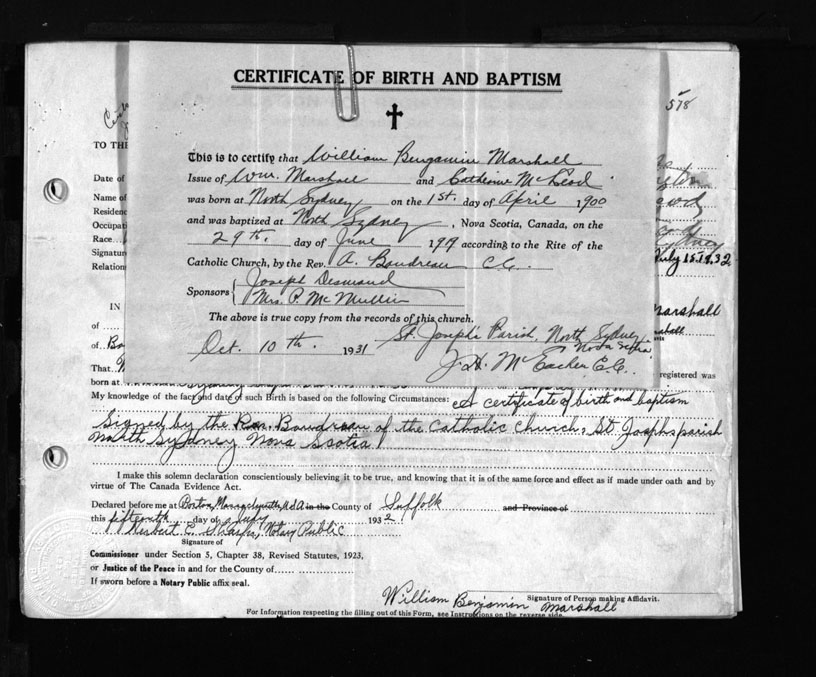 CERTIFICATE OF BIRTH AND BAPTISM
578
TO THE
This is to certify that William Benjamin Marshall
Issue of Wm. Marshall and Catherine McLeod
was born at North Sydney on the 1st. day of April 1900
and was baptized at North Sydney, Nova Scotia, Canada, on the
29th. day of June 1919 according to the Rite of the
Catholic Church, by the Rev. A. Boudreau C.C.
Sponsors Joseph Desmond
Mrs. P. McMullin
The above is true copy from the records of this church.
Oct. 10th. 1931 St. Joseph's Parish, North Sydney
Nova Scotia
J. H. McEacher C.C.
Date of
Name of
Residenc
Occupati
Race
Signatur
Relation
July 15 1932
IN
Marshall
of
of Bo
That
registered was
born at
My knowledge of the fact and date of such Birth is based on the following Circumstances: A certificate of birth and baptism
Signed by the Rev. Boudreau of the Catholic Church, St. Josephs parish
North Sydney Nova Scotia
I make this solemn declaration conscientiously believing it to be true, and knowing that it is of the same force and effect as if made under oath and by
virtue of The Canada Evidence Act.
Declared before me at Boston, Massachusetts, U.S.A. in the County of Suffolk and Province of
this fifteenth day of July 1932
Herbert E. Notary Public
Signature of
Commissioner under Section 5, Chapter 38, Revised Statutes, 1923,
or Justice of the Peace in and for the County of
If sworn before a Notary Public affix seal.
William Benjamin Marshall
Signature of Person making Affidavit.
For Information respecting the filling out of this Form, see Instructions on the reverse side.